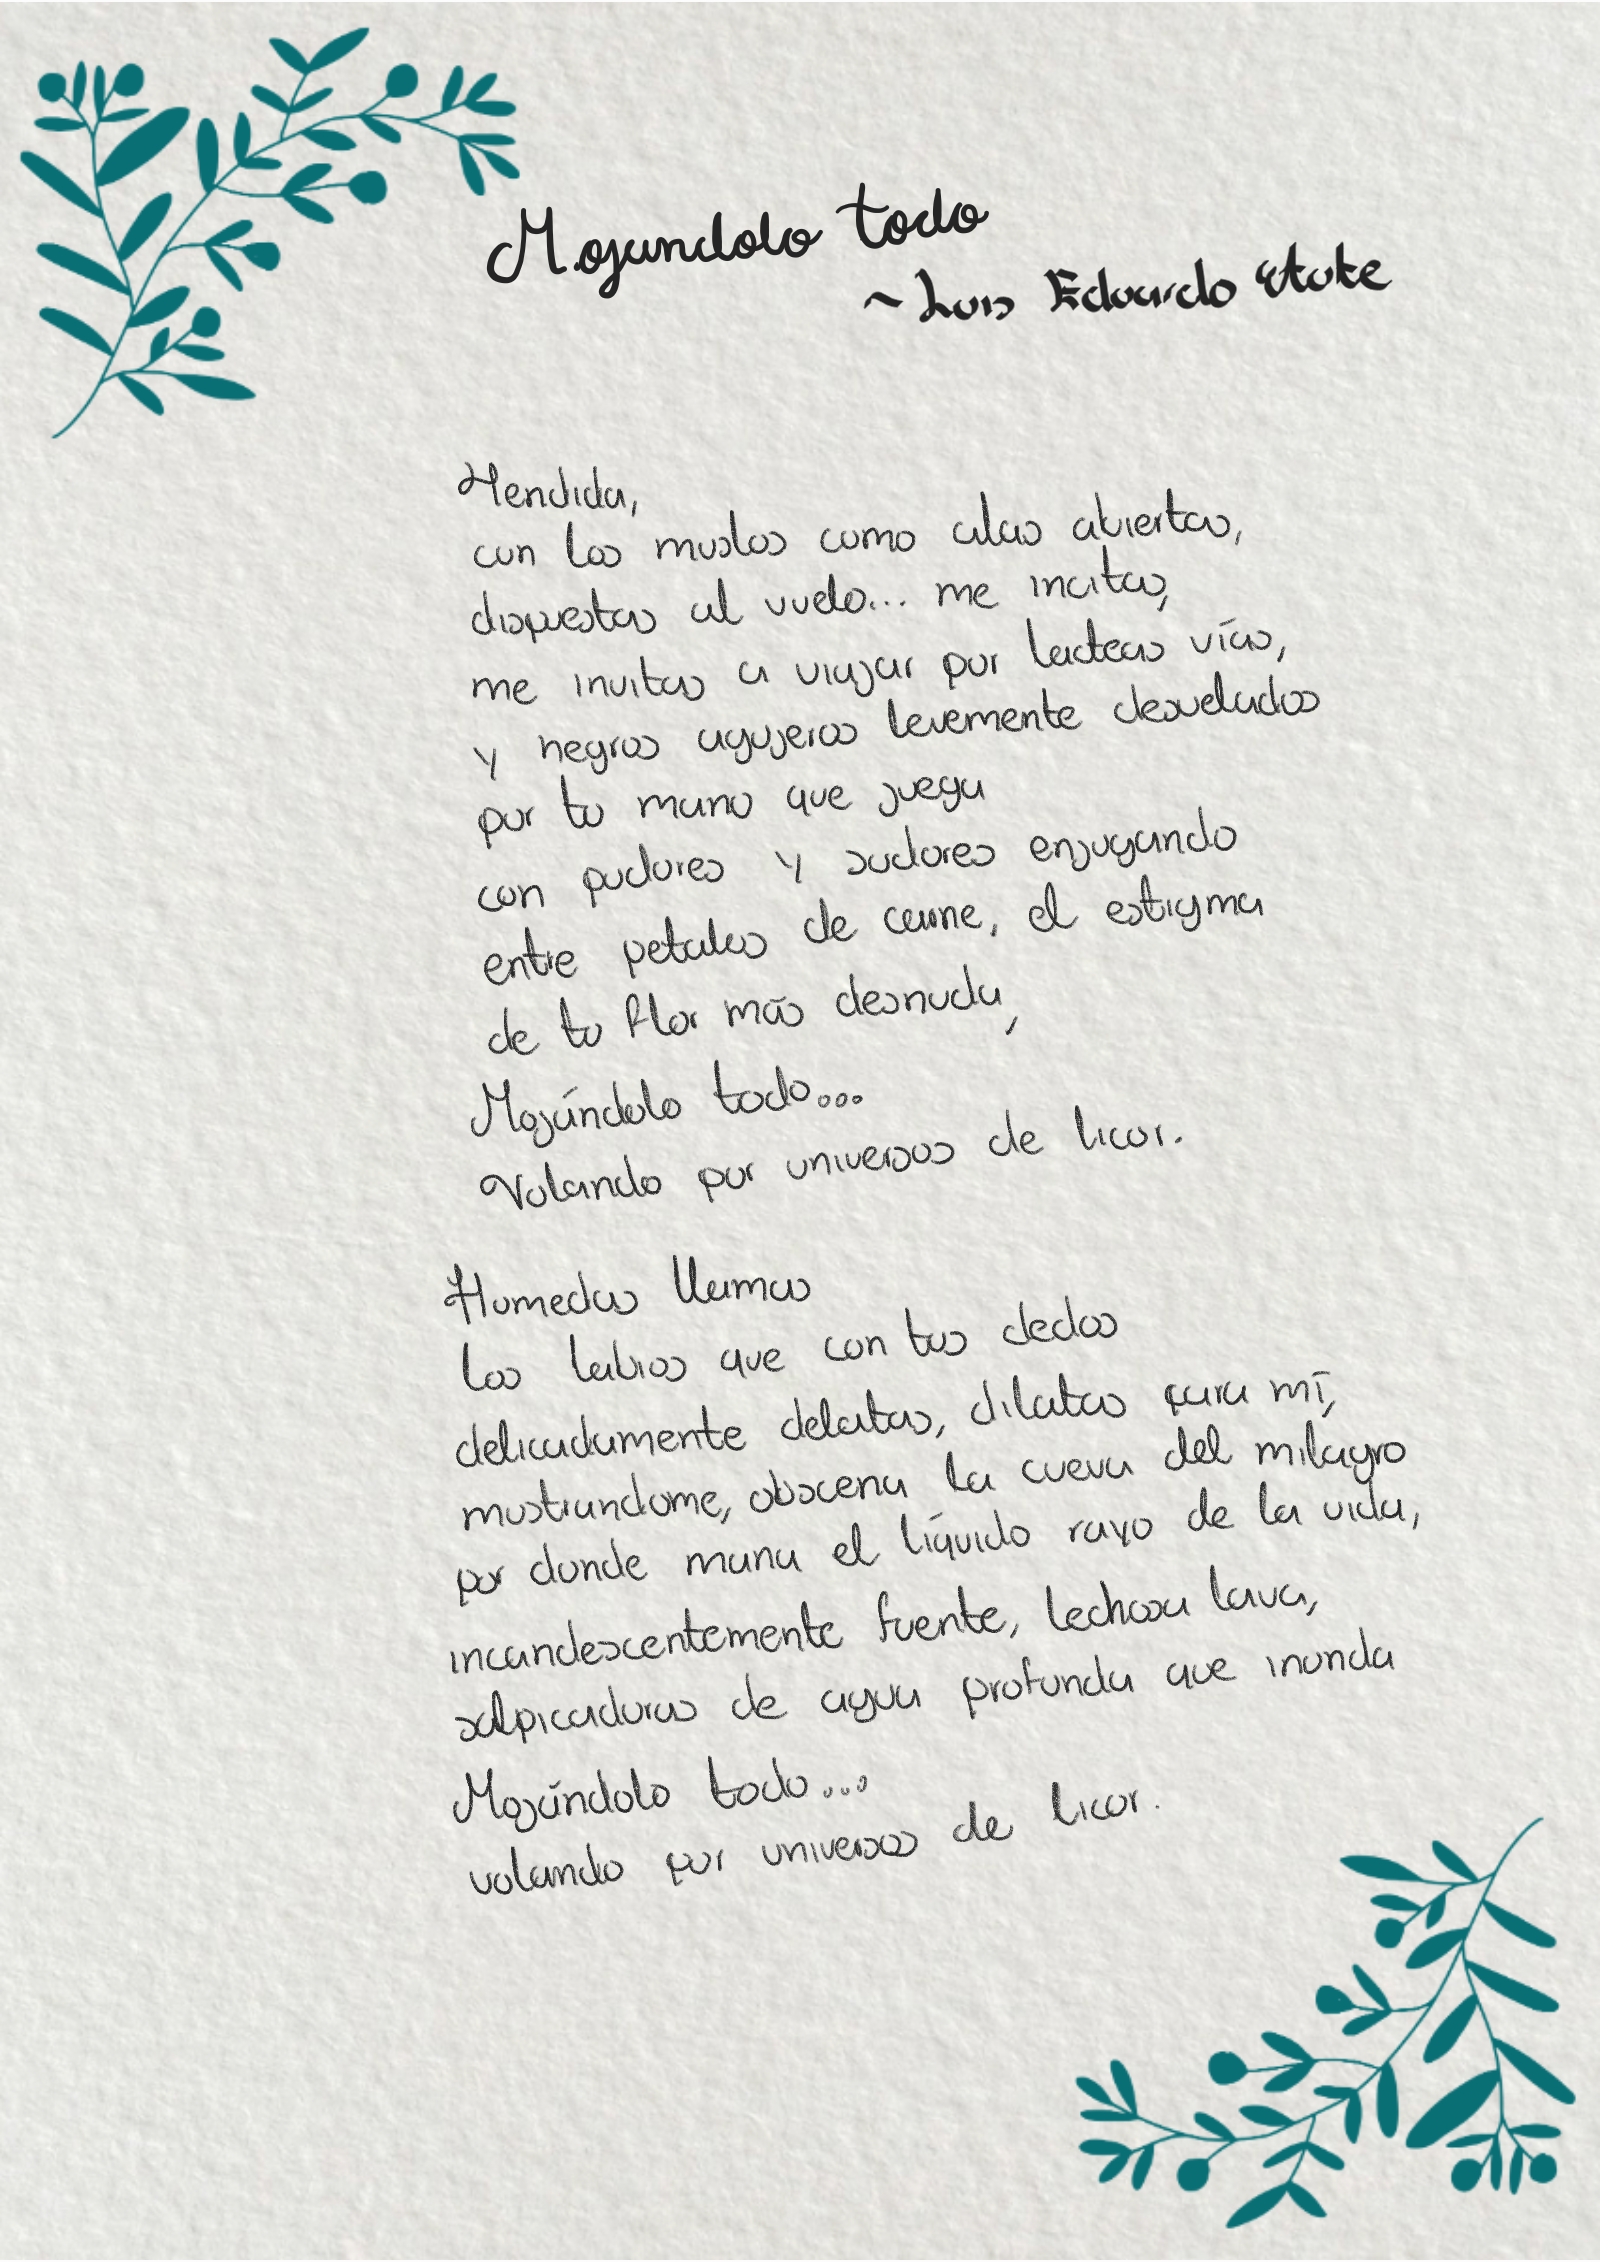 Mojandolo todo
~Luis Eduardo Aute
Hendida,
con los muslos como alas abiertas,
dispuestas al vuelo... me incitas,
me invitas a viajar por lacteas vías,
y negros agujeros levemente desvelados
por tu mano que juega
con pudores y sudores enjugando
entre petalos de carne, el estigma
de tu flor más desnuda,
Mojándolo todo...
Volando por universos de licor.
Humedas llamas
los labios que con tus dedos
delicadamente delatas, dilatas para mí,
mostrandome, obscena la cueva del milagro
por donde mana el líquido rayo de la vida,
incandescentemente fuente, lechosa lava,
salpicaduras de agua profunda que inunda
Mojándolo todo...
volando por universos de licor.